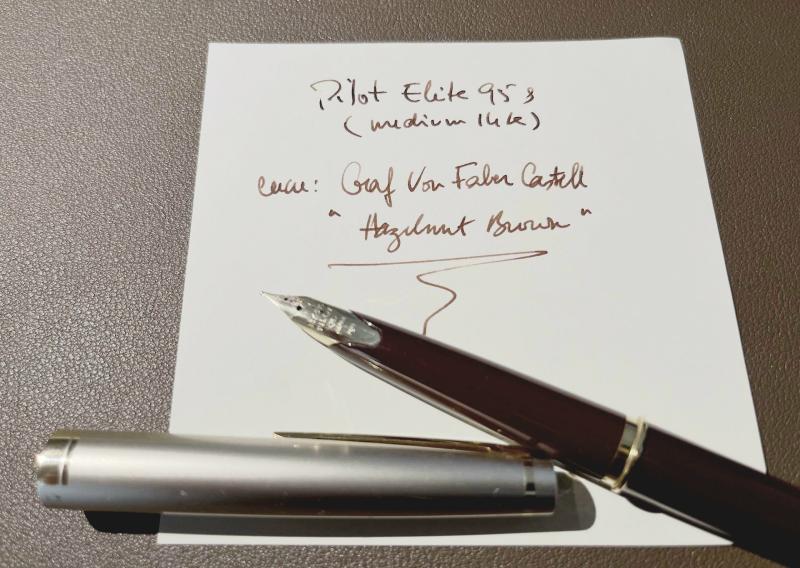 Pilot Elite 95s
(medium 14k)
encre: Graf Von Faber Castell
"Hazelnut Brown"